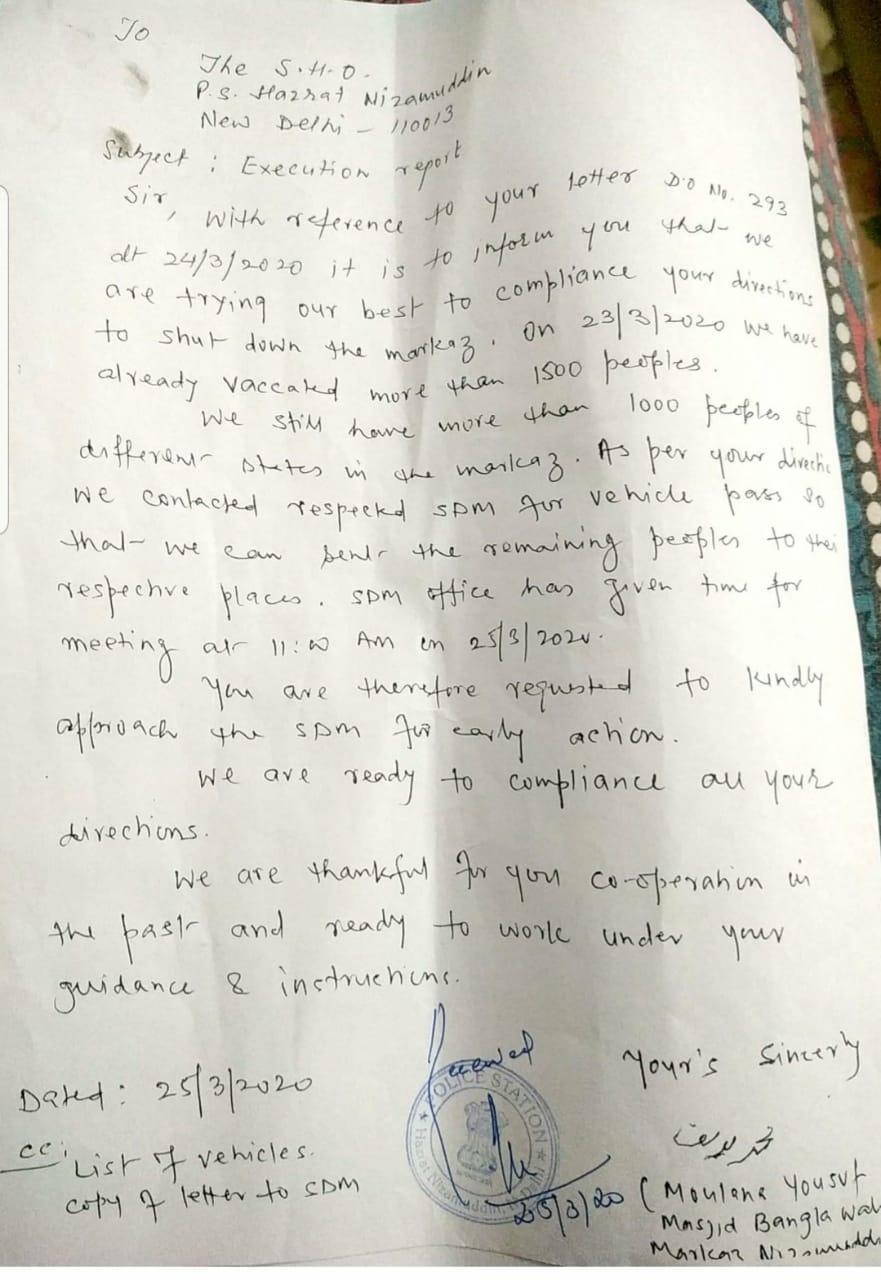 To
The S.H.O.
P.S. Hazrat Nizamuddin
New Delhi - 110013
Subject : Execution report
Sir,
With reference to your letter D.O No. 293
dt 24/3/2020 it is to inform you that we
are trying our best to compliance your directions
to shut down the markaz. On 23/3/2020 we have
already vaccated more than 1500 peoples.
We still have more than 1000 peoples of
different states in the markaz. As per your directi
we contacted respected SDM for vehicle pass so
that we can sent the remaining peoples to thei
respective places. SDM office has given time for
meeting at 11:00 AM on 25/3/2020.
You are therefore requested to kindly
approach the SDM for early action.
We are ready to compliance all your
directions.
We are thankful for you co-operation in
the past and ready to work under your
guidance & instructions.
Your's Sincerly
Dated : 25/3/2020
cc: List of vehicles.
copy of letter to SDM
Received
POLICE STATION
Hazrat Nizamuddin, N. Delhi
25/3/20
محمد یوسف
(Moulana Yousuf
Masjid Bangla Wal
Markaz Nizamuddi